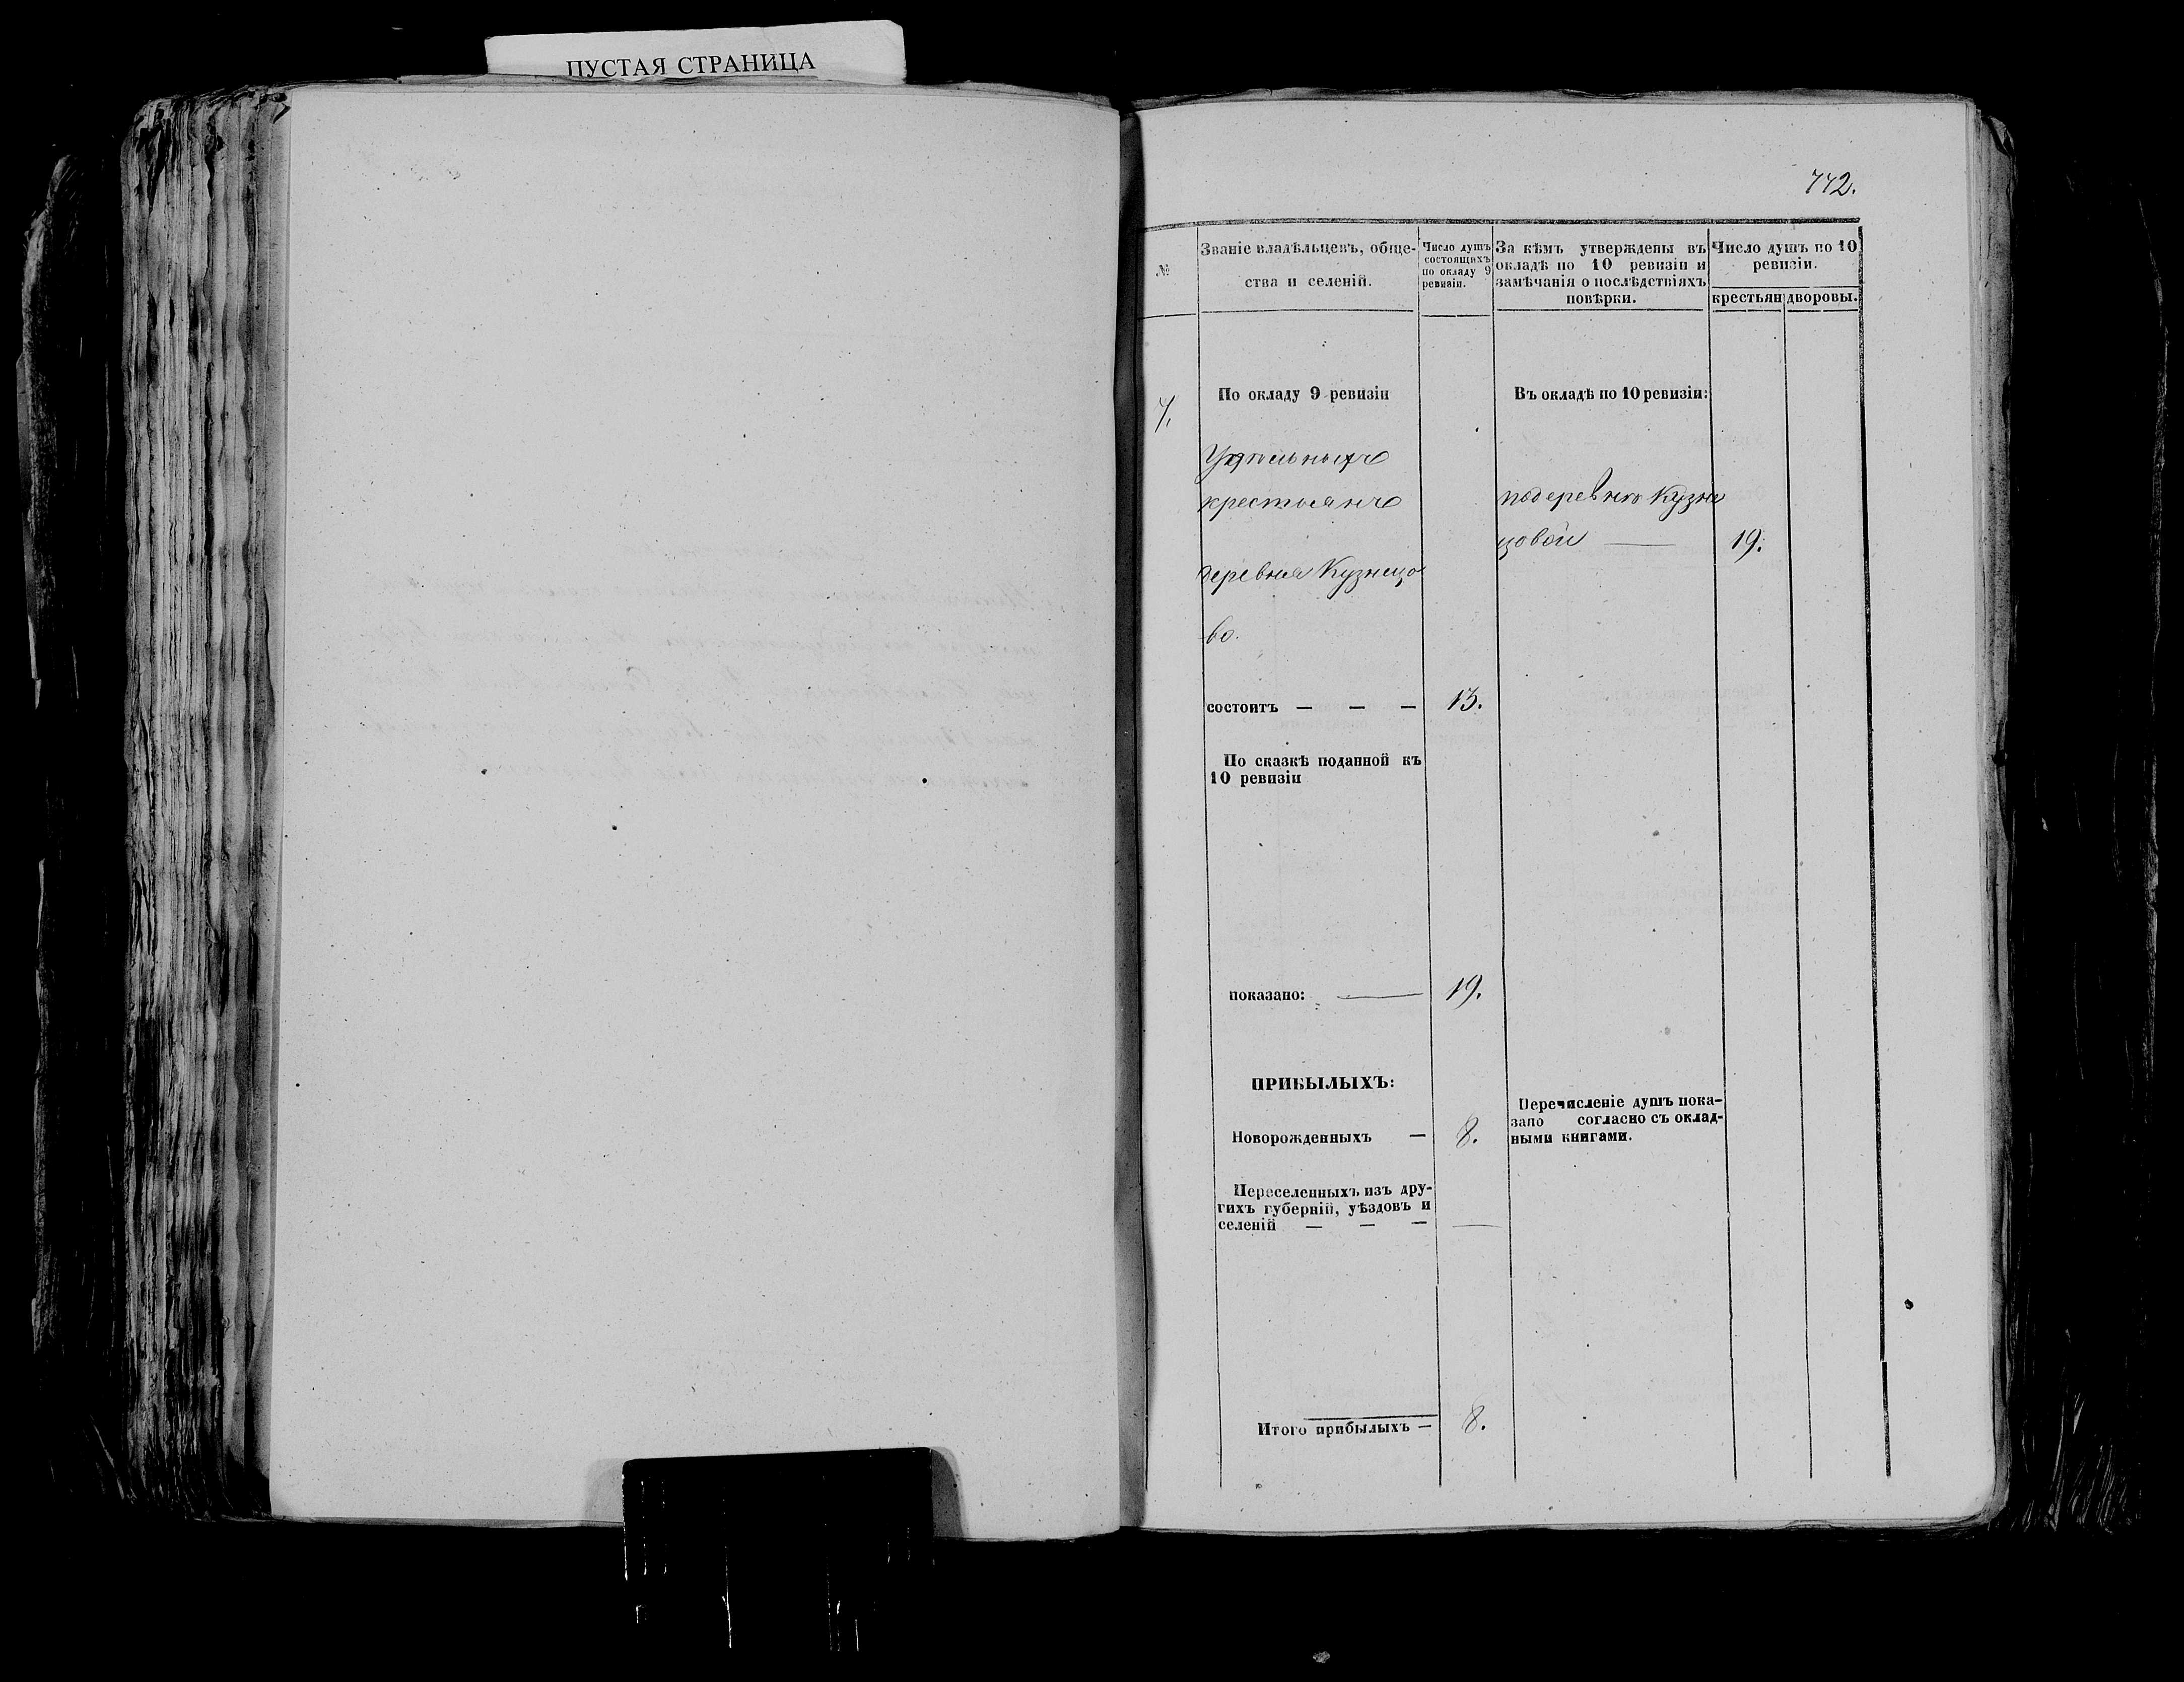 ПУСТАЯ СТРАНИЦА
772.
№
Званіе владѣльцевъ, обще-
ства и селеній.
Число душъ
состоящихъ
по окладу 9
ревизіи.
За кѣмъ утверждены въ
окладѣ по 10 ревизіи и
замѣчанія о послѣдствіяхъ
повѣрки.
Число душъ по 10
ревизіи.
крестьян
дворовы.
7.
По окладу 9 ревизіи
Удѣльныхъ
крестьянъ
деревня Кузнецо
во.
состоитъ — — —
13.
По сказкѣ поданной къ
10 ревизіи
показано:
19.
ПРИБЫЛЫХЪ:
Новорожденныхъ —
8.
Переселенныхъ изъ дру-
гихъ губерній, уѣздовъ и
селеній — — —
Итого прибылыхъ —
8.
Въ окладѣ по 10 ревизіи:
подеревнѣ Кузне
цовой —
19.
Перечисленіе душъ пока-
зано согласно съ оклад-
ными книгами.